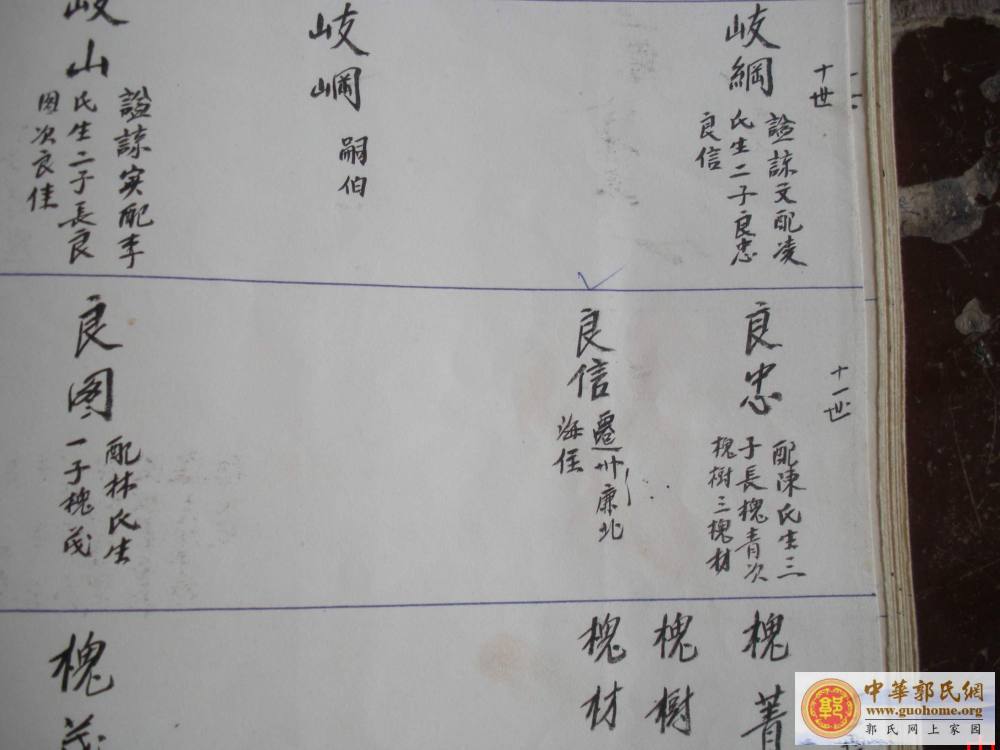 十世
岐綱
諡諒文配凌
氏生二子良忠
良信
岐㟠
嗣伯
岐山
諡諒实配李
氏生二子長良
图次良佳
十一世
良忠
配陳氏生三
子長槐青次
槐樹三槐材
良信
遷卅廉北
海住
良图
配林氏生
一子槐茂
槐菁
槐樹
槐材
槐茂
中華郭氏網
www.guohome.org
郭氏网上家园